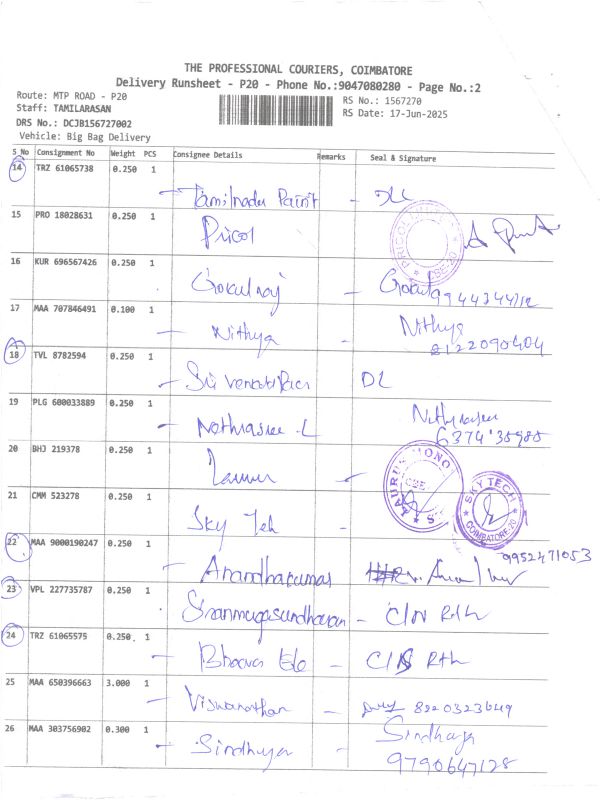 THE PROFESSIONAL COURIERS, COIMBATORE
Delivery Runsheet - P20 - Phone No.:9047080280 - Page No.:2
Route: MTP ROAD - P20
Staff: TAMILARASAN
DRS No.: DCJB156727002
Vehicle: Big Bag Delivery
RS No.: 1567270
RS Date: 17-Jun-2025
S No Consignment No Weight PCS Consignee Details Remarks Seal & Signature
14 TRZ 61065738 0.250 1
Tamilnadu Paint - DLL
15 PRO 18028631 0.250 1
Pricol
16 KUR 696567426 0.250 1
Gokulraj - Gokul
17 MAA 707846491 0.100 1
Nithya - Nithya
8122090404
18 TVL 8782594 0.250 1
DL
19 PLG 600033889 0.250 1
20 BHJ 219378 0.250 1
21 CMM 523278 0.250 1
Sky Teh -
SKY TECH
COIMBATORE-20
22 MAA 9000190247 0.250 1
9952471053
Anandhakumar
23 VPL 227735787 0.250 1
24 TRZ 61065575 0.250 1
25 MAA 650396663 3.000 1
Viswanathan - 8220323649
26 MAA 303756902 0.300 1
Sindhuja - Sindhuja
9790647128